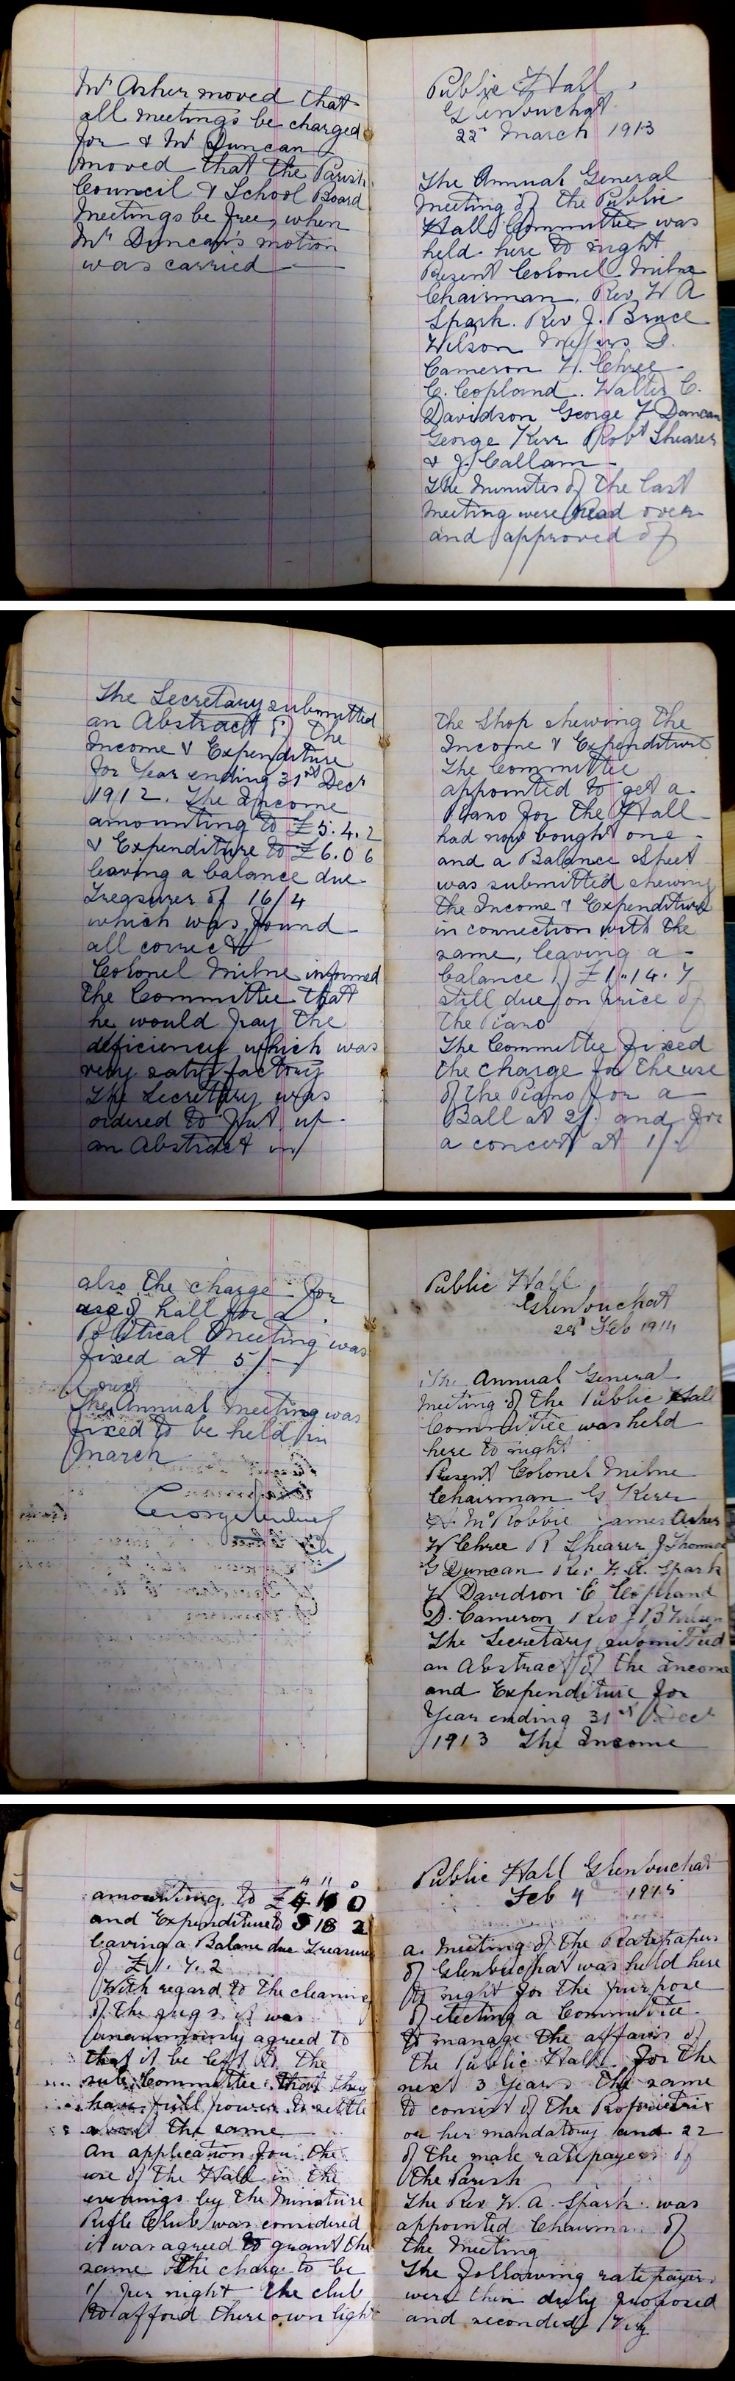 Mr Asher moved that
all meetings be charged
for & Mr Duncan
moved that the Parish
Council & School Board
Meetings be free, when
Mr Duncan's motion
was carried
Public Hall
Glenbuchat
22nd March 1913
The Annual General
Meeting of the Public
Hall Committee was
held here to night
Present Colonel Milne
Chairman, Rev W A
Spark. Rev J. Bruce
Wilson Messrs D.
Cameron W. Chree
C. Copland. Walter C.
Davidson George F Duncan
George Kerr Robt Shearer
& J. Callam
The Minutes of the last
Meeting were Read over
and approved of
The Secretary submitted
an Abstract of the
Income & Expenditure
for Year ending 31st Decr
1912. The Income
amounting to £5.4.2
& Expenditure to £6.0 6
leaving a balance due
Treasurer of 16/4
which was found
all correct
Colonel Milne informed
the Committee that
he would pay the
deficiency which was
very satisfactory
The Secretary was
ordered to put up
an Abstract in
the Shop shewing the
Income & Expenditure
The Committee
appointed to get a
Piano for the Hall
had now bought one
and a Balance Sheet
was submitted shewing
the Income & Expenditure
in connection with the
same, leaving a
balance of £1.14.7
still due on price of
the Piano
The Committee fixed
the charge for the use
of the Piano for a
Ball at 2/ and for
a concert at 1/
also the charge for
use of hall for a
Political Meeting was
fixed at 5/-
next
The Annual meeting was
fixed to be held in
March
Public Hall
Glenbuchat
Feb 1914
The Annual General
Meeting of the Public Hall
Committee was held
here to night
Present Colonel Milne
Chairman G Kerr
McRobbie James Asher
W Chree R Shearer J Thomson
G Duncan Rev W. A. Spark
W Davidson C Copland
D. Cameron Rev J B Wilson
The Secretary submitted
an Abstract of the Income
and Expenditure for
Year ending 31st Decr
1913 The Income
amounting to £4 11 0
and Expenditure to 5 18 2
leaving a Balance due Treasurer
of £1. 7. 2
With regard to the cleaning
of the rugs it was
unanimously agreed to
that it be left to the
sub Committee that they
have full power to settle
about the same
An application for the
use of the Hall in the
evenings by the Miniature
Rifle Club was considered
it was agreed to grant the
same the charge to be
1/ per night the club
to afford there own light
Public Hall Glenbuchat
Feb 4 1915
a Meeting of the Ratepayers
of Glenbuchat was held here
to night for the purpose
of electing a Committee
to manage the affairs of
the Public Hall for the
next 3 Years the same
to consist of the Proprietrix
or her mandatory and 22
of the male ratepayers of
the Parish
The Rev W. A. Spark was
appointed Chairman of
the Meeting
The following ratepayers
were then duly proposed
and seconded Viz